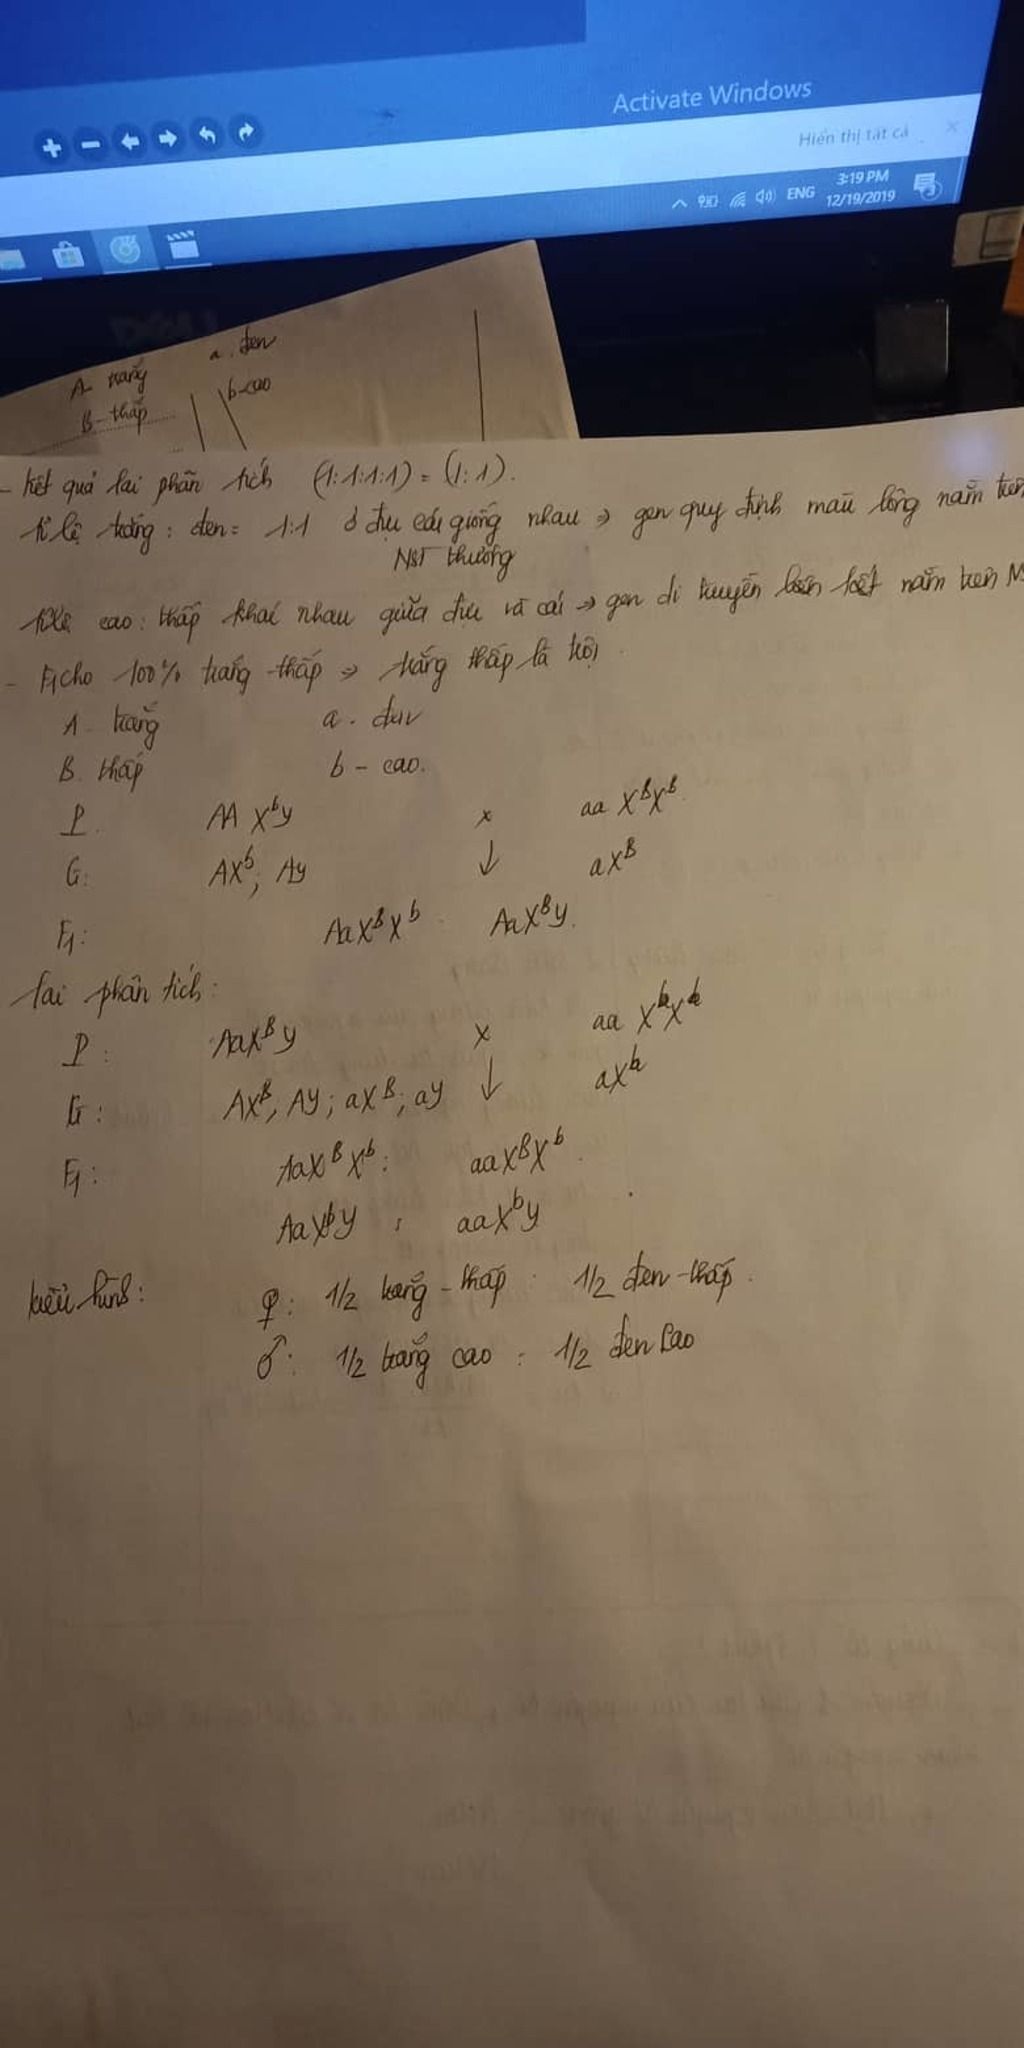 Activate Windows
Hiển thị tất cả
3:19 PM
ENG
12/19/2019
3
DELL
A- trắng a. đen
B- thấp b-cao
- Kết quả lai phân tích (1:1:1:1) = (1:1).
tỉ lệ trắng : đen = 1:1 ở đực cái giống nhau => gen quy định màu lông nằm trên
NST thường
tỉ lệ cao : thấp khác nhau giữa đực và cái -> gen di truyền liên kết nằm trên N
- F1 cho 100% trắng-thấp => trắng thấp là trội.
A. trắng a. đen
B. thấp b - cao.
P. AA XᵇY x aa XᴮXᴮ
G: AXᵇ; AY ↓ aXᴮ
F1: AaXᴮXᵇ AaXᴮY.
lai phân tích:
P: AaXᴮY x aa XᵇXᵇ
G: AXᴮ, AY; aXᴮ; aY ↓ aXᵇ
F1: AaXᴮXᵇ: aaXᴮXᵇ.
AaXᵇY : aaXᵇY
kiểu hình: ♀: 1/2 trắng - thấp : 1/2 đen-thấp.
♂: 1/2 trắng cao : 1/2 đen cao